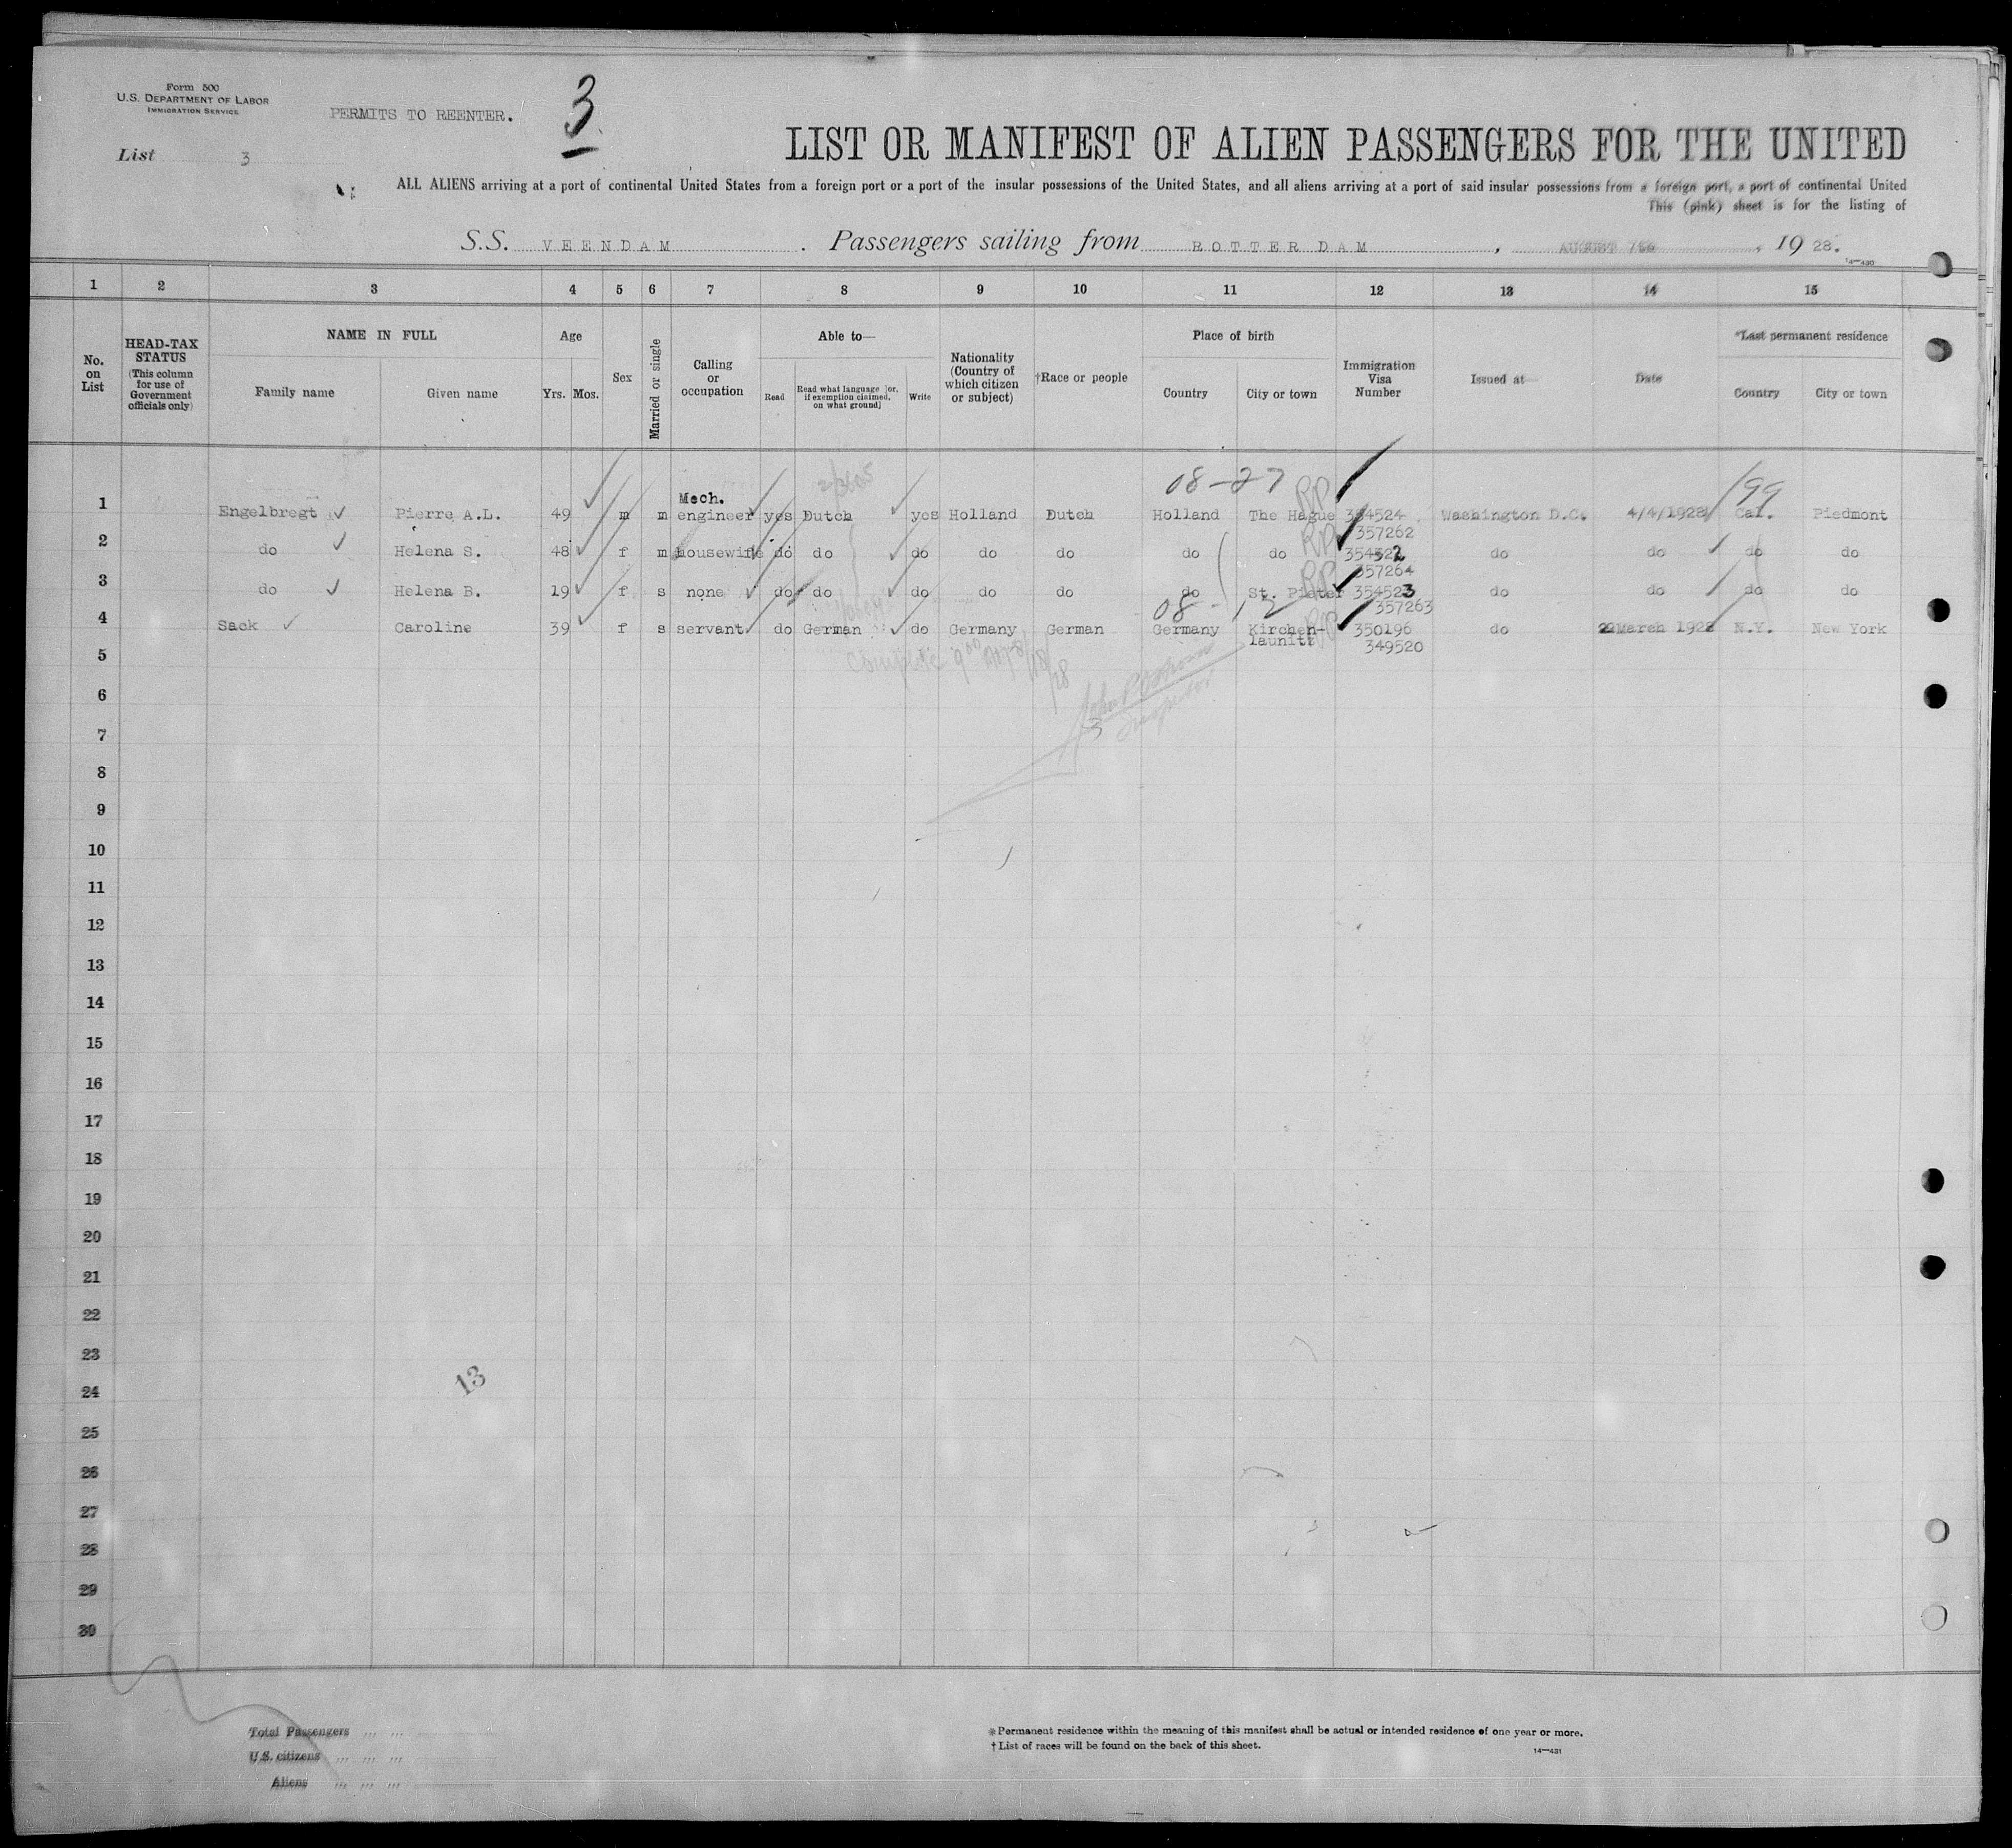 Form 500
U.S. DEPARTMENT OF LABOR
IMMIGRATION SERVICE
PERMITS TO REENTER.
3
List 3
LIST OR MANIFEST OF ALIEN PASSENGERS FOR THE UNITED
ALL ALIENS arriving at a port of continental United States from a foreign port or a port of the insular possessions of the United States, and all aliens arriving at a port of said insular possessions from a foreign port, a port of continental United
This (pink) sheet is for the listing of
S.S. VEENDAM. Passengers sailing from ROTTERDAM, AUGUST, 1928.
14—430
1 2 3 4 5 6 7 8 9 10 11 12 13 14 15
No. on List
HEAD-TAX STATUS (This column for use of Government officials only)
NAME IN FULL
Family name Given name
Age
Yrs. Mos.
Sex
Married or single
Calling or occupation
Able to—
Read Read what language [or, if exemption claimed, on what ground] Write
Nationality (Country of which citizen or subject)
†Race or people
Place of birth
Country City or town
Immigration Visa Number
Issued at—
Date
*Last permanent residence
Country City or town
08-27 99
Mech.
1 Engelbregt Pierre A.L. 49 m m engineer yes Dutch yes Holland Dutch Holland The Hague RP 354524 Washington D.C. 4/4/1928 Cal. Piedmont
357262
2 do Helena S. 48 f m housewife do do do do do do do RP 354522 do do do do
357264
3 do Helena B. 19 f s none do do do do do do St. Pieter RP 354523 do do do do
08-12 357263
4 Sack Caroline 39 f s servant do German do Germany German Germany Kirchen- RP 350196 do 29March 1928 N.Y. New York
launitz 349520
5
6
Inspector
3
7
8
9
10
11
12
13
14
15
16
17
18
19
20
21
22
23
13
24
25
26
27
28
29
30
Total Passengers
U.S. citizens
Aliens
* Permanent residence within the meaning of this manifest shall be actual or intended residence of one year or more.
† List of races will be found on the back of this sheet.
14—431